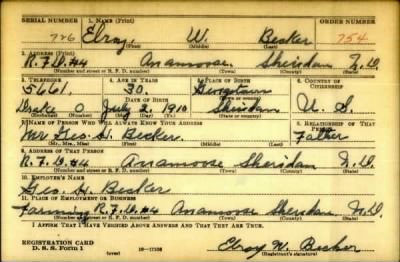 SERIAL NUMBER 1. NAME (Print) ORDER NUMBER
726 Elroy W. Becker 754
(First) (Middle) (Last)
2. ADDRESS (Print)
R.F.D. #4 Anamoose Sheridan N.D.
(Number and street or R. F. D. number) (Town) (County) (State)
3. TELEPHONE 4. AGE IN YEARS 5. PLACE OF BIRTH 6. COUNTRY OF CITIZENSHIP
5661 30 Georgetown
DATE OF BIRTH
Drake O July 2, 1910 Sheridan U. S.
(Exchange) (Number) (Mo.) (Day) (Yr.) (State or country)
7. NAME OF PERSON WHO WILL ALWAYS KNOW YOUR ADDRESS 8. RELATIONSHIP OF THAT PERSON
Mr Geo. H. Becker. Father
(Mr., Mrs., Miss) (First) (Middle) (Last)
9. ADDRESS OF THAT PERSON
R.F.D. #4 Anamoose Sheridan N.D.
(Number and street or R. F. D. number) (Town) (County) (State)
10. EMPLOYER'S NAME
Geo. H. Becker
11. PLACE OF EMPLOYMENT OR BUSINESS
Farming R.F.D. #4 Anamoose Sheridan N.D.
(Number and street or R. F. D. number) (Town) (County) (State)
I AFFIRM THAT I HAVE VERIFIED ABOVE ANSWERS AND THAT THEY ARE TRUE.
REGISTRATION CARD
D. S. S. FORM 1 (over) Elroy W. Becker
(Registrant's signature)